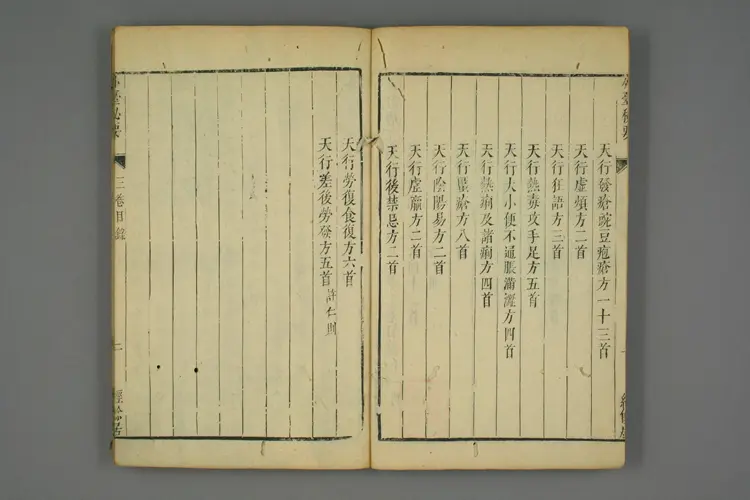 外臺秘要
天行發瘡豌豆疱瘡方一十三首
天行虛煩方二首
天行狂語方三首
天行熱毒攻手足方五首
天行大小便不通脹滿澁方四首
天行熱痢及諸痢方四首
天行䘌瘡方八首
天行陰陽易方二首
天行虛羸方二首
天行後禁忌方二首
天行勞復食復方六首
天行差後勞發方五首許仁則
外臺秘要
三卷目錄
二
經餘居